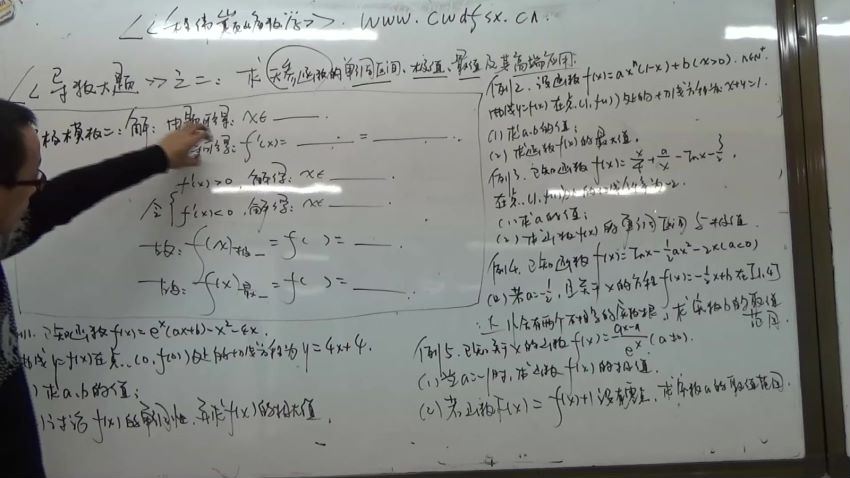 www.cwdfsx.cn.
<<导数大题>>之二: 求 函数的单调区间、极值、最值及其高端应用.
模板二: 解: 由题得: x∈ ___.
得: f'(x)= ___ = ___.
令{ f'(x)>0, 解得: x∈ ___
f'(x)<0, 解得: x∈ ___.
故: f(x)极_ = f( ) = ___.
故: f(x)最_ = f( ) = ___.
已知函数 f(x)=e^x(ax+b)-x²-4x.
曲线 y=f(x) 在点(0,f(0))处的切线方程为 y=4x+4.
) 求 a,b 的值;
) 讨论 f(x) 的单调性, 并求 f(x) 的极大值.
例2. 设函数 f(x)=ax^n(1-x)+b(x>0). n∈N*
曲线 y=f(x) 在点(1,f(1))处的切线方程为: x+y=1.
(1) 求 a,b 的值;
(2) 求函数 f(x) 的最大值.
例3. 已知函数 f(x)=x/4+a/x-lnx-3/2,
在点(1,f(1))
(1) 求 a 的值;
(2) 求函数 f(x) 的单调区间与极值.
例4. 已知函数 f(x)=lnx-1/2ax²-2x(a<0)
(2) 若 a=-1/2, 且关于 x 的方程 f(x)=-1/2x+b 在[1,4]
上恰有两个不相等的实数根, 求实数 b 的取值范围.
例5. 已知关于 x 的函数 f(x)=(ax-a)/e^x (a≠0).
(1) 当 a=-1 时, 求函数 f(x) 的极值.
(2) 若函数 F(x)=f(x)+1 没有零点, 求实数 a 的取值范围.